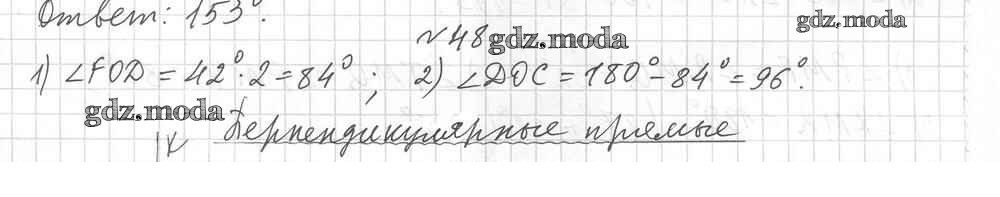 Ответ: 153°.
gdz.moda
№48 gdz.moda
1) ∠FOD = 42°·2 = 84°; 2) ∠DOC = 180° - 84° = 96°.
gdz.moda
Перпендикулярные прямые
K